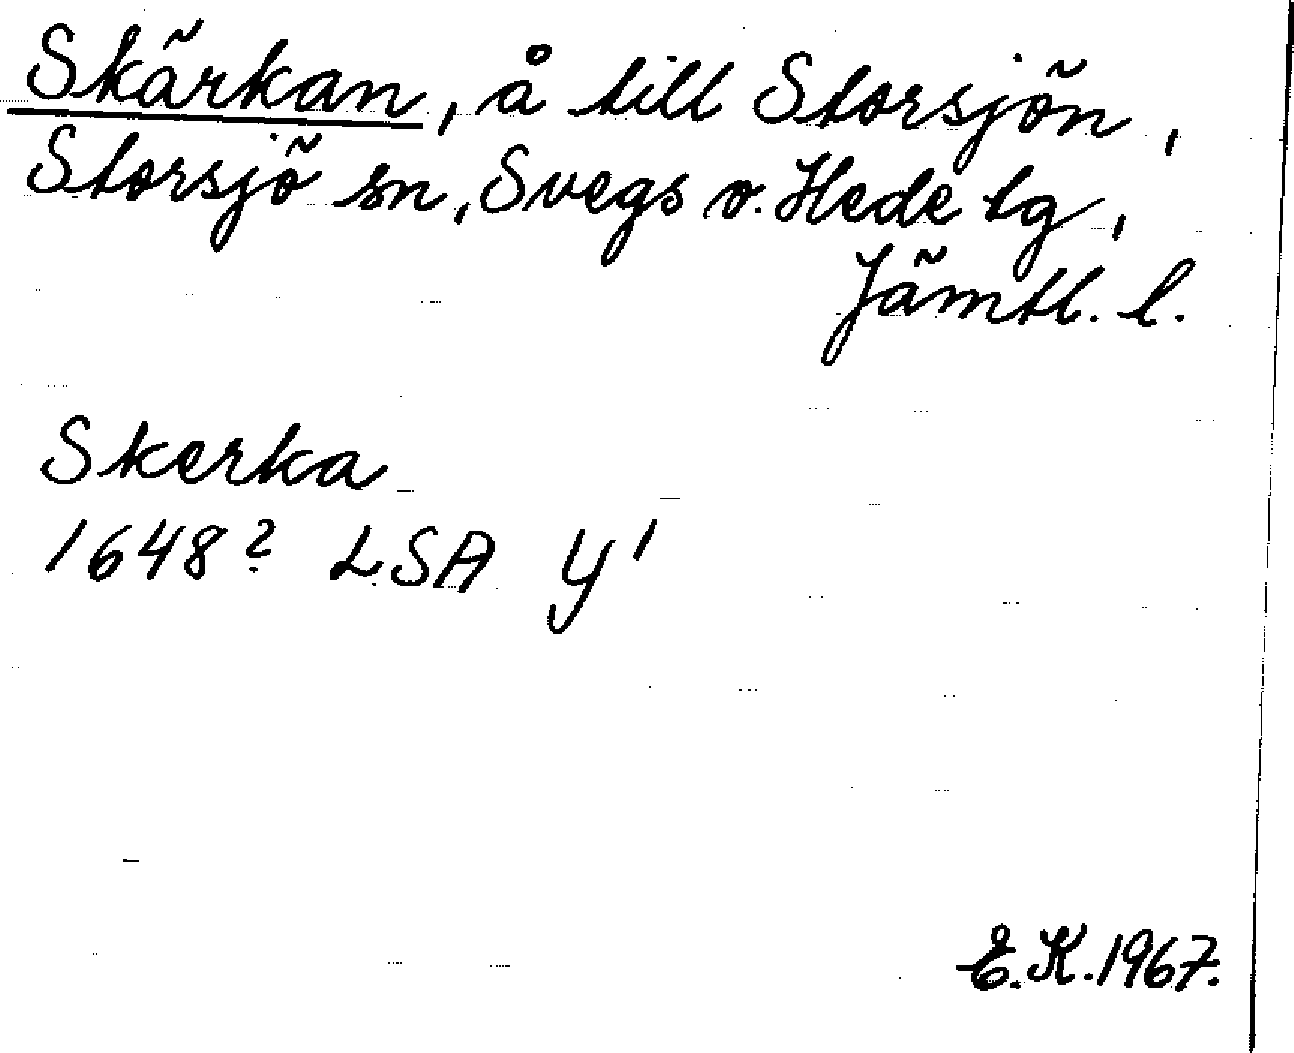 Skärkan, å till Storsjön,
Storsjö sn, Svegs o. Hede tg,
Jämtl. l.
Skerka
1648? LSA Y'
E.K. 1967.